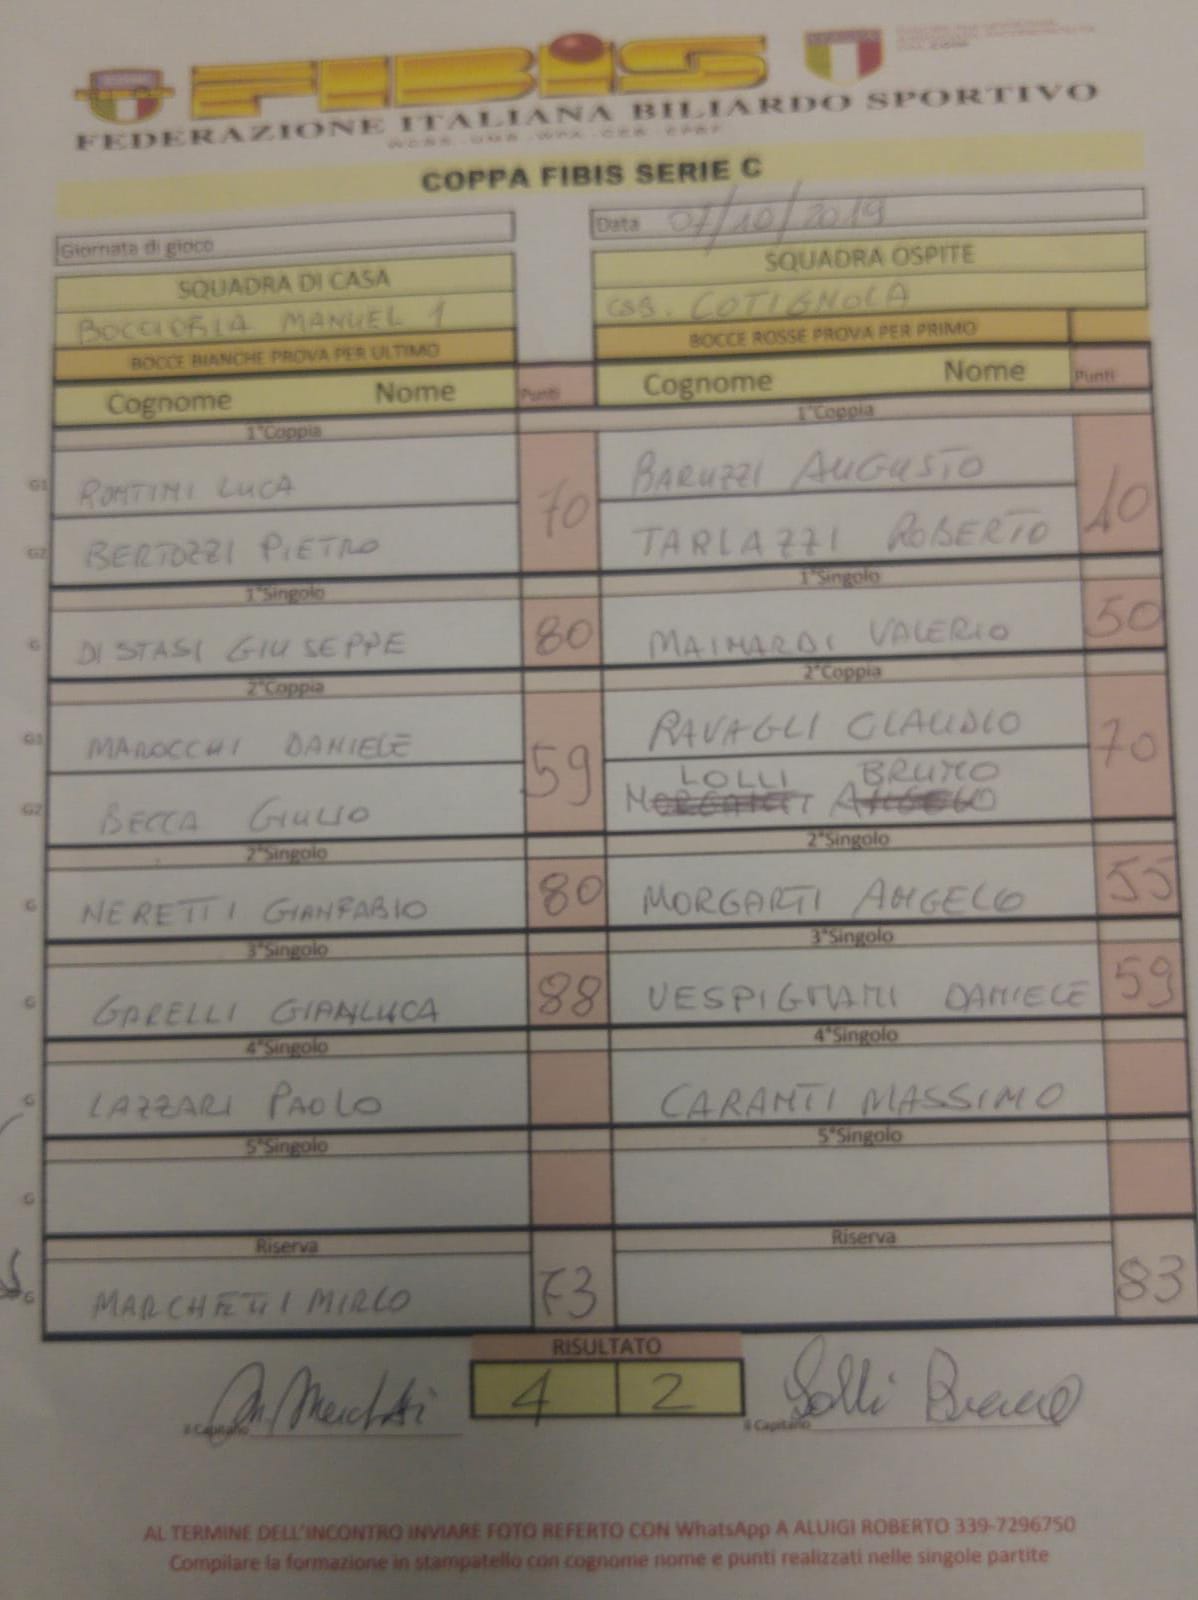 FIBiS
FEDERAZIONE ITALIANA BILIARDO SPORTIVO
COPPA FIBIS SERIE C
Giornata di gioco
Data 07/10/2019
SQUADRA DI CASA SQUADRA OSPITE
BOCCIOFILA MANUEL 1 CSB. COTIGNOLA
BOCCE BIANCHE PROVA PER ULTIMO BOCCE ROSSE PROVA PER PRIMO
Cognome Nome Punti Cognome Nome Punti
1°Coppia 1°Coppia
G1 RONTINI LUCA 70 BARUZZI AUGUSTO 10
G2 BERTOZZI PIETRO TARLAZZI ROBERTO
1°Singolo 1°Singolo
G DI STASI GIUSEPPE 80 MAINARDI VALERIO 50
2°Coppia 2°Coppia
G1 MAROCCHI DANIELE 59 RAVAGLI CLAUDIO 70
LOLLI BRUNO
G2 BECCA GIULIO
2°Singolo 2°Singolo
G NERETTI GIANFABIO 80 MORGANTI ANGELO 55
3°Singolo 3°Singolo
G GARELLI GIANLUCA 88 VESPIGNANI DANIELE 59
4°Singolo 4°Singolo
G LAZZARI PAOLO CARANTI MASSIMO
5°Singolo 5°Singolo
G
Riserva Riserva
G MARCHETTI MIRCO 73 83
RISULTATO
4 2
il Capitano il Capitano Lolli Bruno
AL TERMINE DELL'INCONTRO INVIARE FOTO REFERTO CON WhatsApp A ALUIGI ROBERTO 339-7296750
Compilare la formazione in stampatello con cognome nome e punti realizzati nelle singole partite